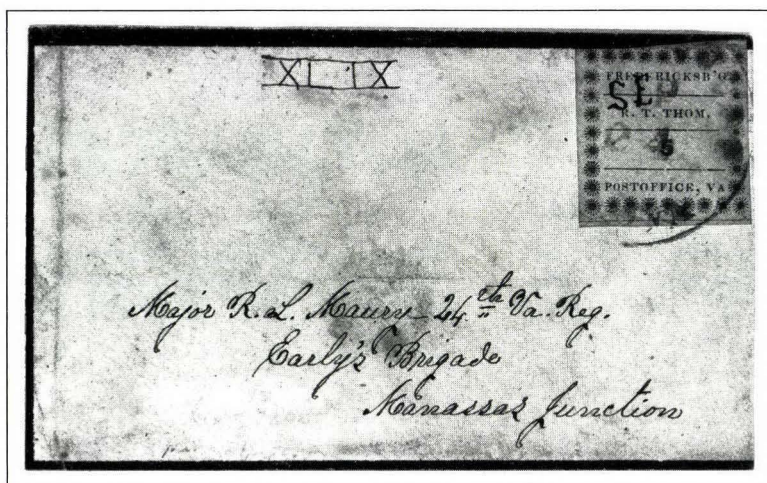 XL IX
FREDERICKSB'G
R. T. THOM.
5
POSTOFFICE, VA
Major R. L. Maury - 24th Va. Reg.
Early's Brigade
Manassas Junction